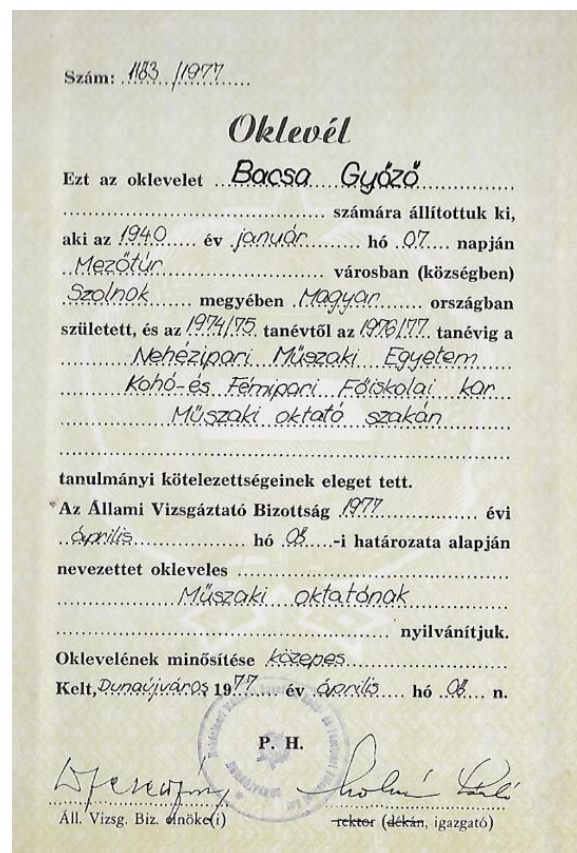 Szám: 1183 /1977
Oklevél
Ezt az oklevelet Bacsa Győző
számára állítottuk ki,
aki az 1940 év január hó 07 napján
Mezőtúr városban (községben)
Szolnok megyében Magyar országban
született, és az 1974/75 tanévtől az 1976/77 tanévig a
Nehézipari Műszaki Egyetem
Kohó-és Fémipari Főiskolai kar
Műszaki oktató szakán
tanulmányi kötelezettségeinek eleget tett.
Az Állami Vizsgáztató Bizottság 1977 évi
április hó 08-i határozata alapján
nevezettet okleveles
Műszaki oktatónak
nyilvánítjuk.
Oklevelének minősítése közepes
Kelt, Dunaújváros 1977 év április hó 08 n.
P. H.
Áll. Vizsg. Biz. elnöke(i) rektor (dékán, igazgató)